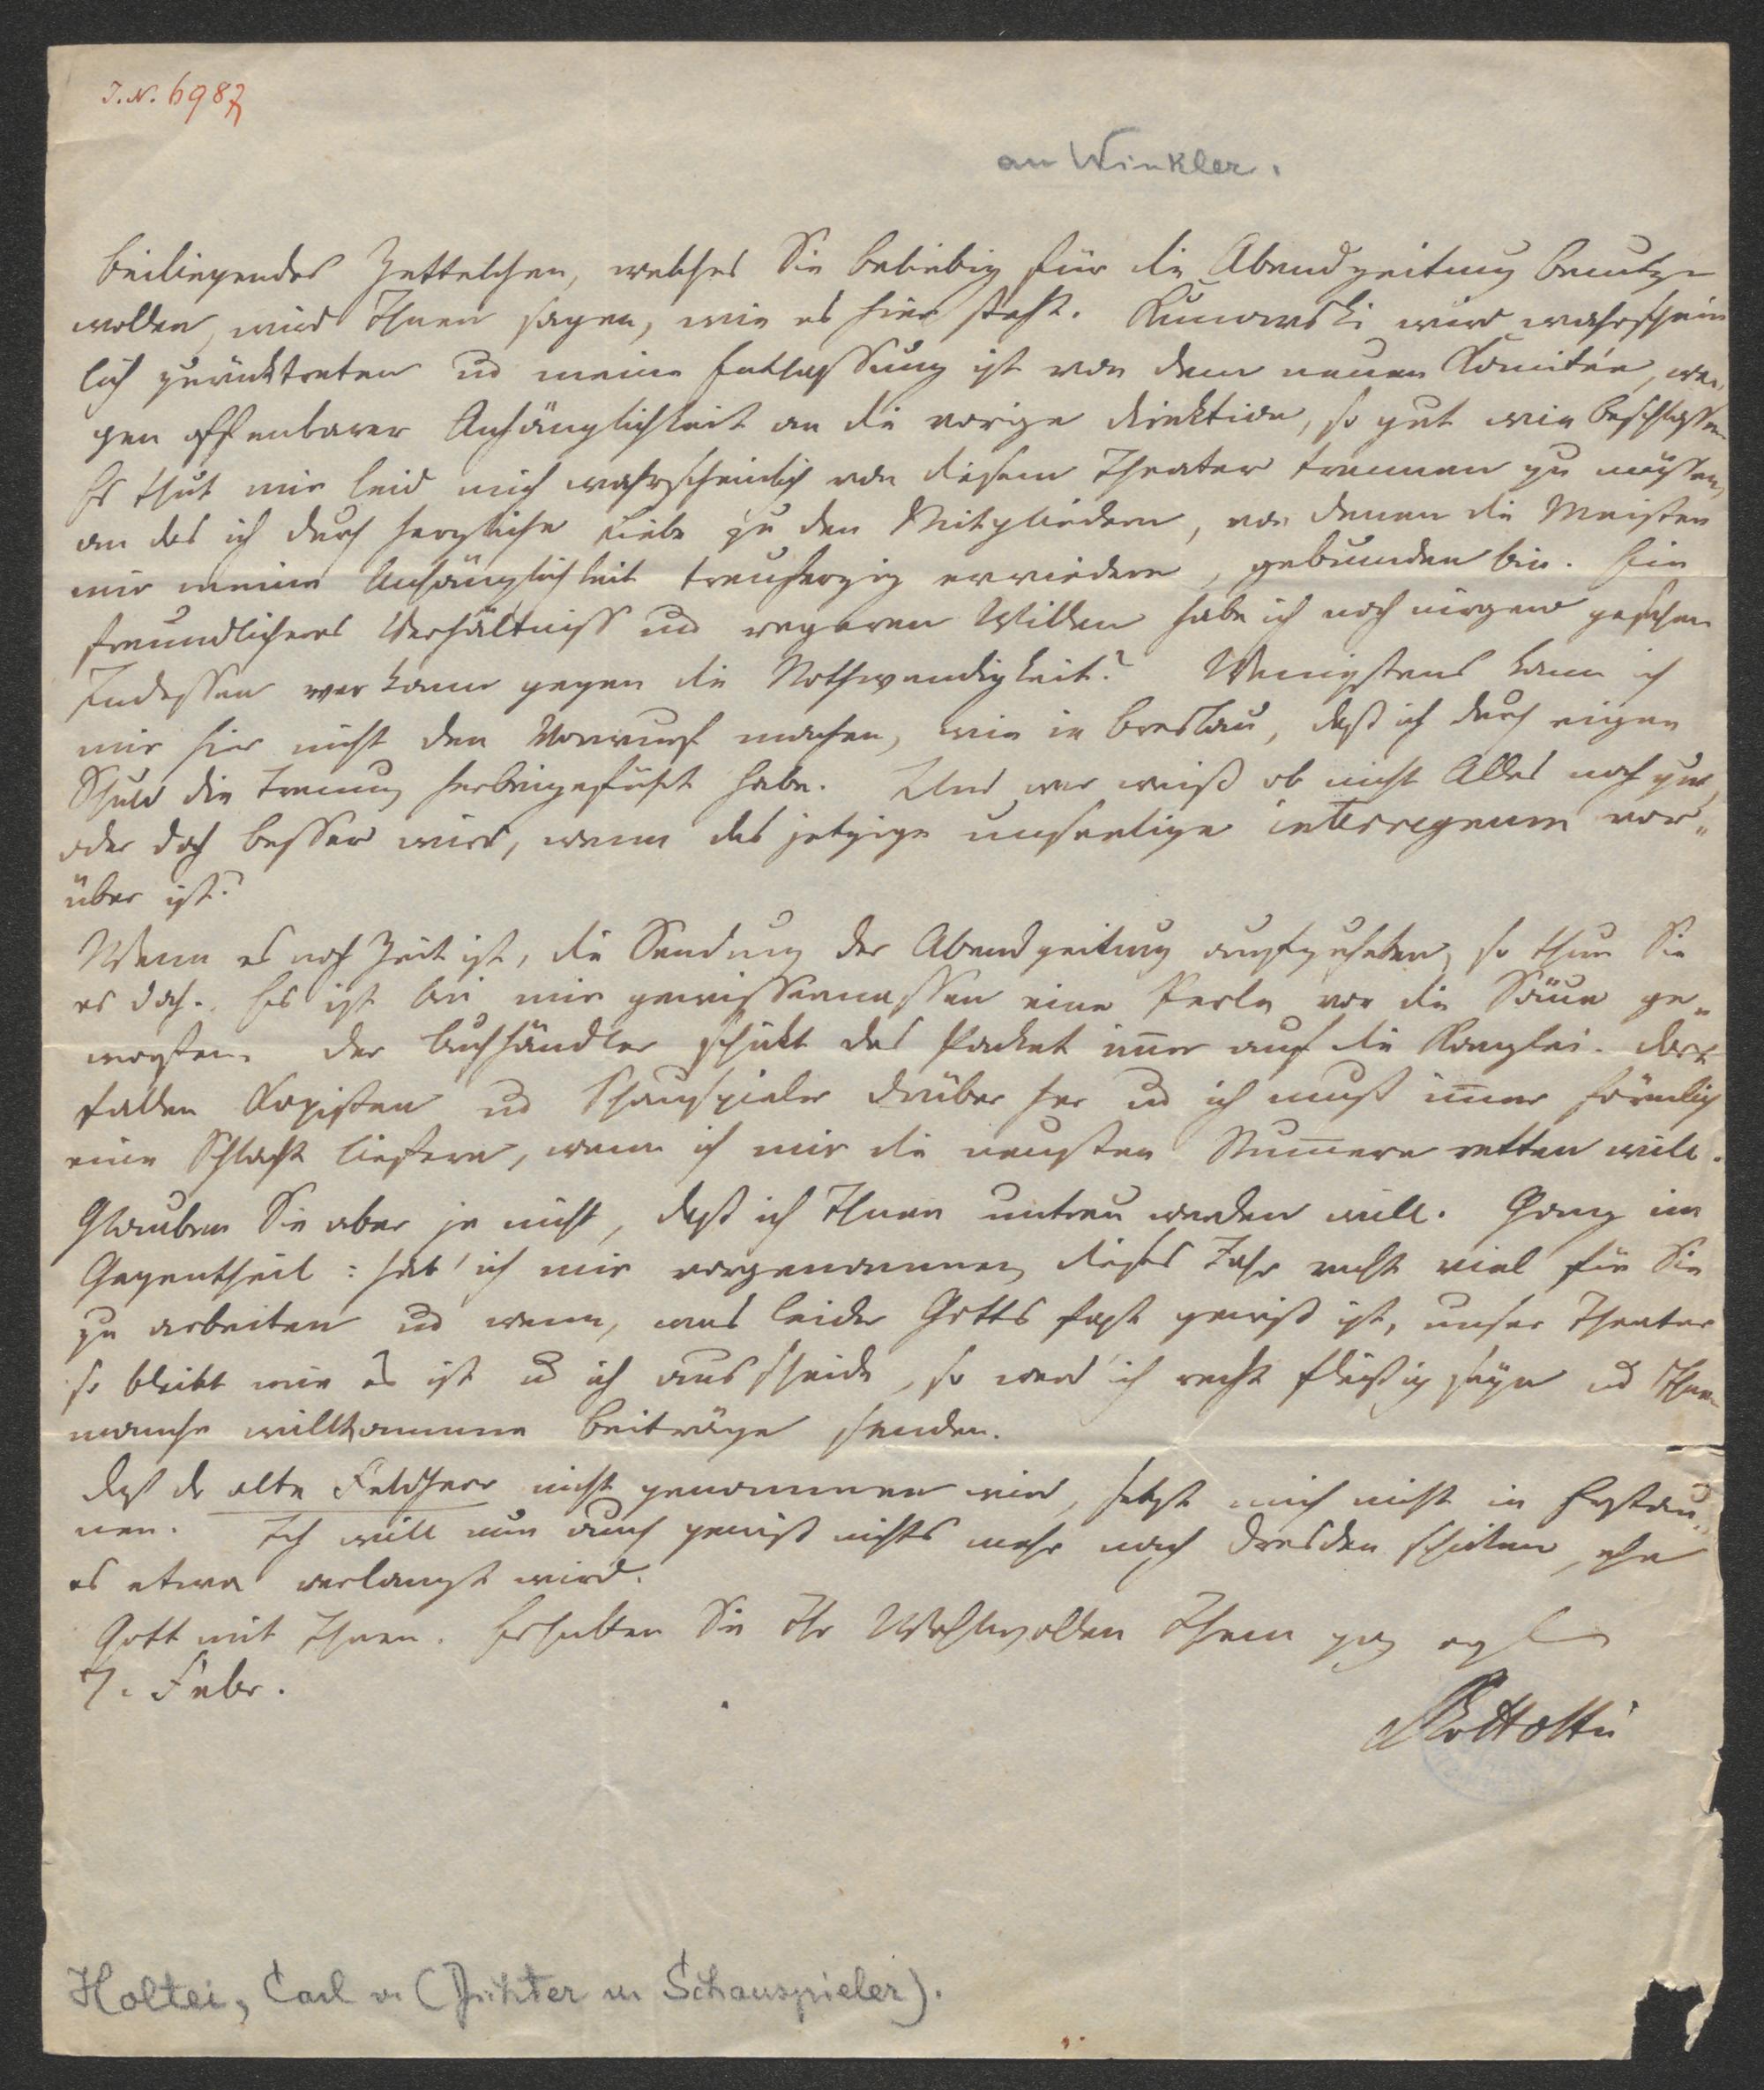 J. N. 6987
an Winkler.
Beiliegendes Zettelchen, welches Sie beliebig für die Abendzeitung benutzen
wollen, wird Ihnen sagen, wie es hier steht. Kunowski wird wahrschein
lich zurücktreten ud meine Entlassung ist von dem neuen Komitée, we-
gen offenbarer Anhänglichkeit an die vorige Direktion, so gut wie beschlossen
Es thut mir leid mich wahrscheinlich von diesem Theater trennen zu müssen,
an das ich durch herzliche Liebe zu den Mitgliedern, von denen die Meisten
mir meine Anhänglichkeit treuherzig erwiedern, gebunden bin. Ein
freundlicheres Verhältniss und regeren Willen habe ich noch nirgend gesehen
Indessen wer kann gegen die Nothwendigkeit? Wenigstens kann ich
mir hier nicht den Vorwurf machen, wie in Breslau, daß ich durch eigen
Schuld die Trennung herbeigeführt habe. Und wer weiß ob nicht Alles noch gut,
oder doch besser wird, wenn das jetzige unseelige interregnum vor„
über ist?
Wenn es noch Zeit ist, die Sendung der Abendzeitung aufzuheben, so thun Sie
es doch. Es ist bei mir gewissermassen eine Perle vor die Säue ge„
worfen. Der Buchhändler schickt das Packet im̅er auf die Kanzlei. Dort
fallen Kopisten ud Schauspieler drüber her ud ich muß im̅er förmlich
eine Schlacht liefern, wenn ich mir die neusten Num̅ern retten will.
Glauben Sie aber ja nicht, daß ich Ihnen untreu werden will. Ganz im
Gegentheil: hab' ich mir vorgenommen, dieses Jahr recht viel für Sie
zu arbeiten ud wenn, was leider Gotts fast gewiß ist, unser Theater
so bleibt wie es ist ud ich ausscheide, so werd' ich recht fleißig seyn ud Ihnen
manche willkommene Beiträge senden.
Daß der alte Feldherr nicht genommen wird, setzt mich nicht in Erstau„
nen. Ich will nun auch gewiß nichts mehr nach Dresden schicken, ehe
es etwa verlangt wird.
Gott mit Ihnen. Erhalten Sie Ihr Wohlwollen Ihrem ganz
7. Febr.
Holtei, Carl v. (Dichter u. Schauspieler).